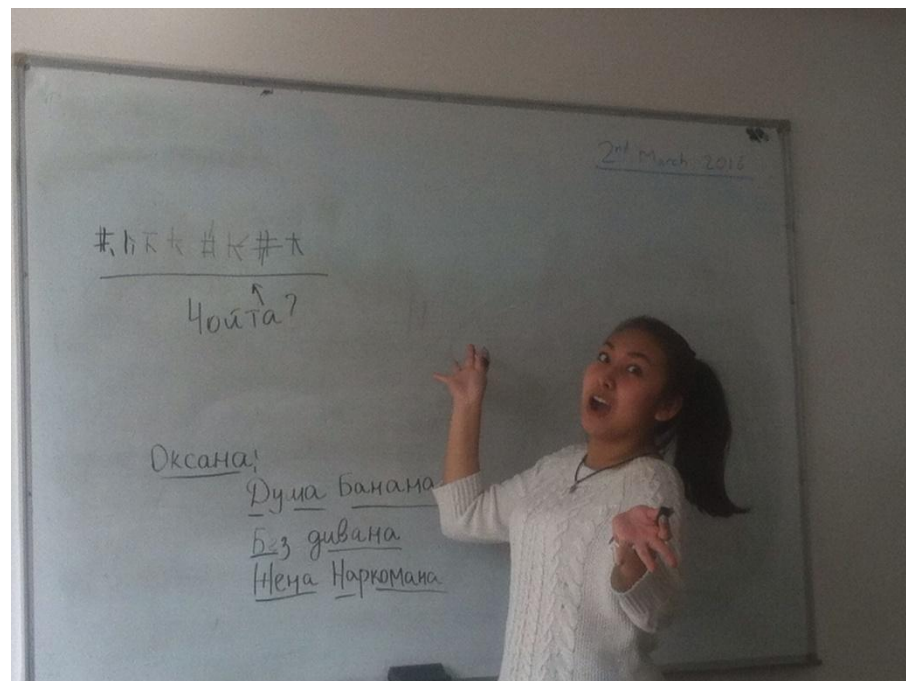 2nd March 2016
Чойта?
Оксана!
Дума Банана
Без дивана
Жена Наркомана